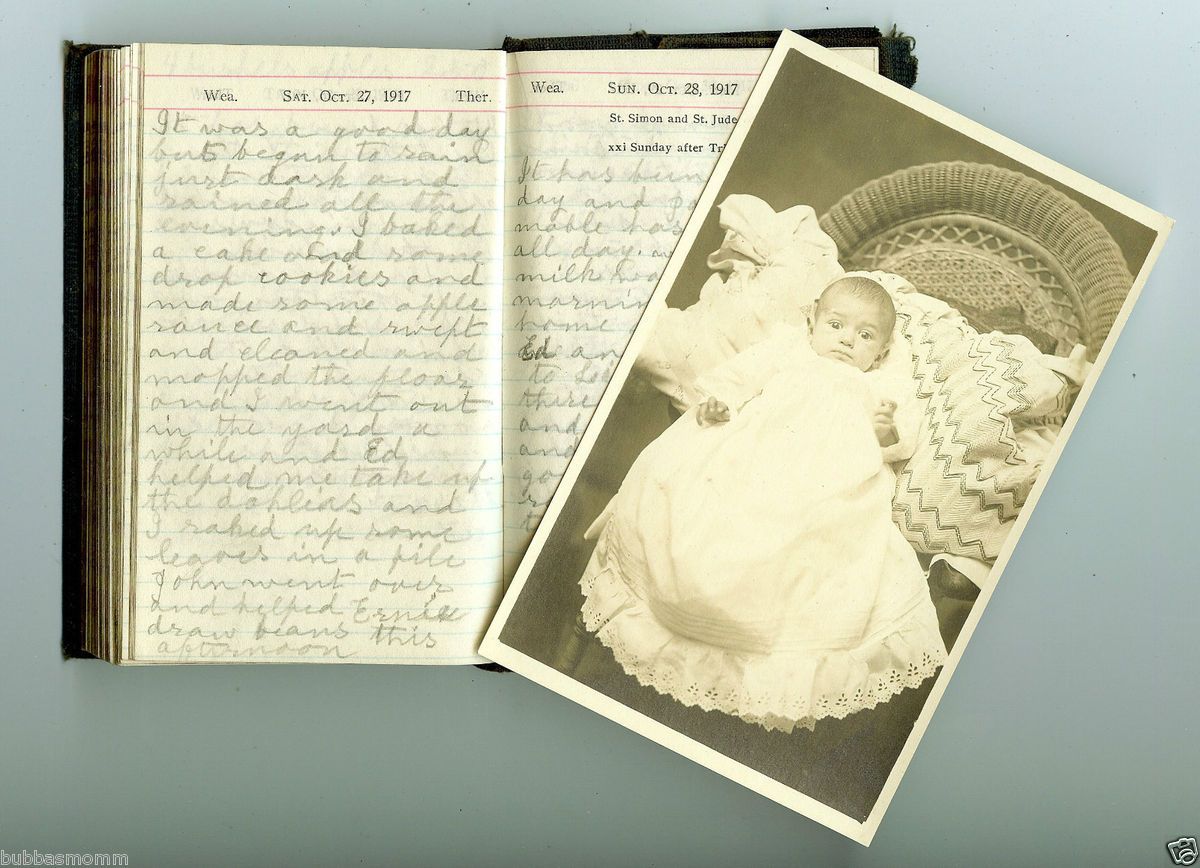 Wea. SAT. OCT. 27, 1917 Ther.
It was a good day
but began to rain
just dark and
rained all the
evening. I baked
a cake and some
drop cookies and
made some apple
sauce and swept
and cleaned and
mopped the floor
and I went out
in the yard a
while and Ed
helped me take up
the dahlias and
I raked up some
leaves in a pile
John went over
and helped Ernie
draw beans this
afternoon
Wea. SUN. OCT. 28, 1917
St. Simon and St. Jude
xxi Sunday after Tri
It has bin
day and
mable has
all day.
milk
mornin
home
Ed an
to
there
and
and
go
bubbasmomm